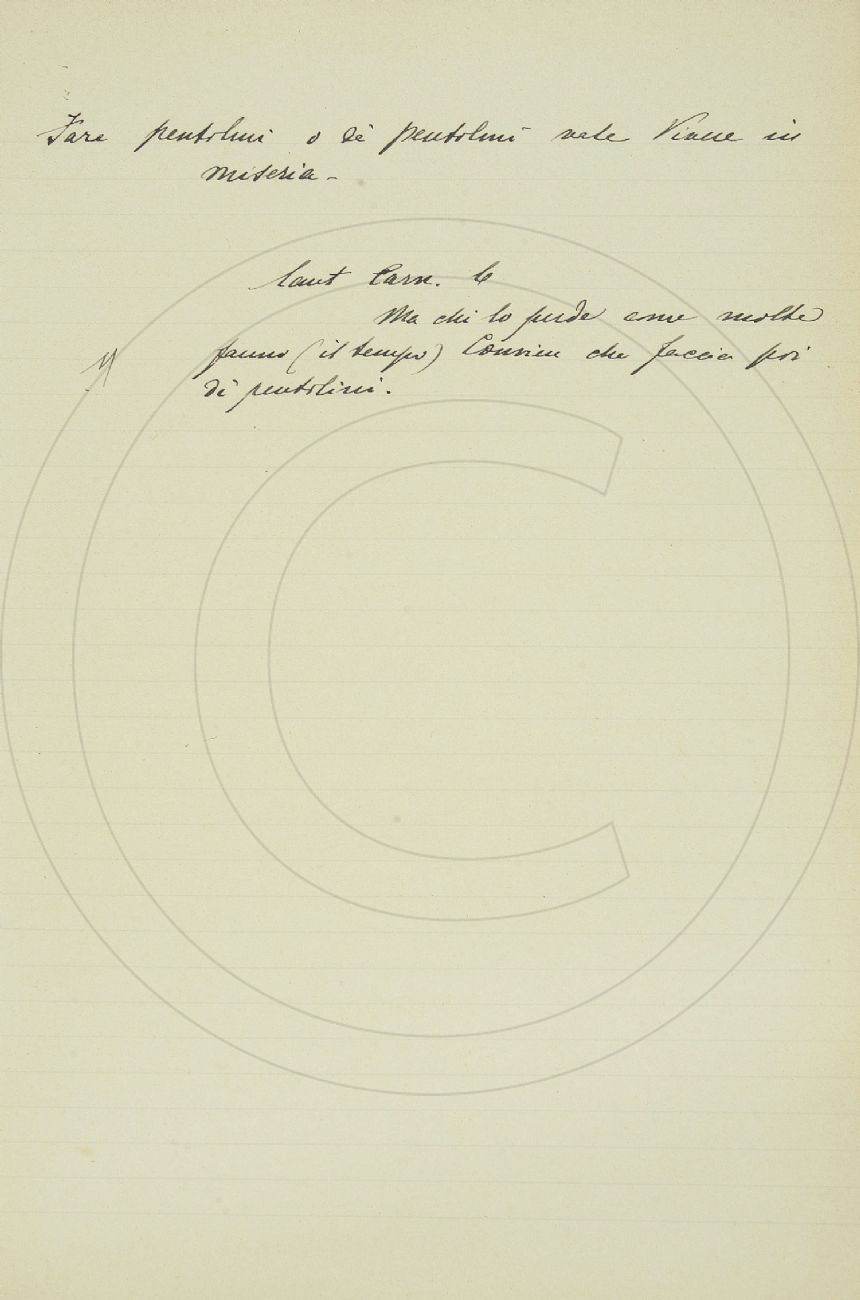 Fare pentolini o di pentolini vale Vivere in
miseria -
Cant Carn. 6
Ma chi lo perde come molte
fanno (il tempo) Convien che faccia poi
di pentolini.